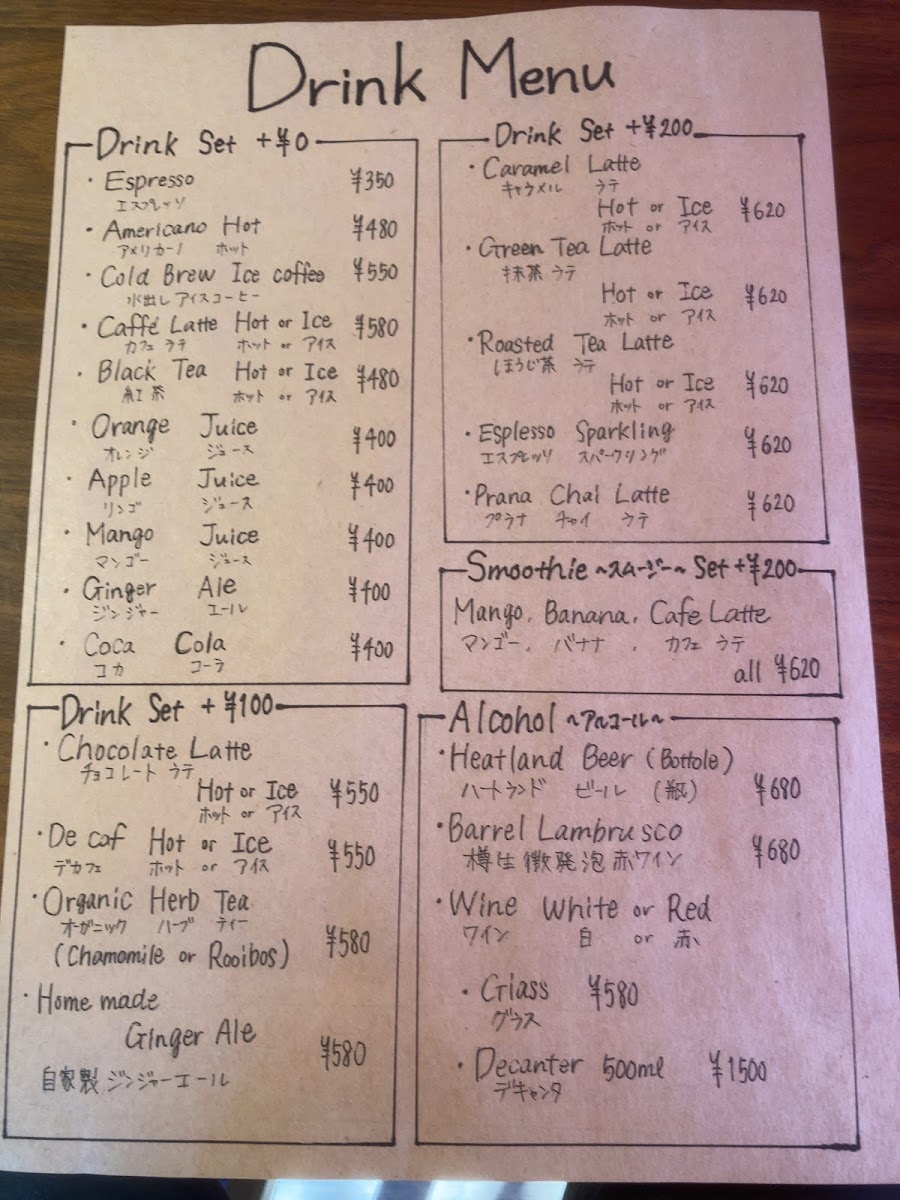 Drink Menu
Drink Set +¥0
・Espresso ¥350
エスプレッソ
・Americano Hot ¥480
アメリカーノ ホット
・Cold Brew Ice coffee ¥550
水出し アイスコーヒー
・Caffé Latte Hot or Ice ¥580
カフェ ラテ ホット or アイス
・Black Tea Hot or Ice ¥480
紅茶 ホット or アイス
・Orange Juice ¥400
オレンジ ジュース
・Apple Juice ¥400
リンゴ ジュース
・Mango Juice ¥400
マンゴー ジュース
・Ginger Ale ¥400
ジンジャー エール
・Coca Cola ¥400
コカ コーラ
Drink Set +¥100
・Chocolate Latte
チョコレート ラテ
Hot or Ice ¥550
ホット or アイス
・De caf Hot or Ice ¥550
デカフェ ホット or アイス
・Organic Herb Tea
オーガニック ハーブ ティー
(Chamomile or Rooibos) ¥580
・Home made
Ginger Ale ¥580
自家製 ジンジャーエール
Drink Set +¥200
・Caramel Latte
キャラメル ラテ
Hot or Ice ¥620
ホット or アイス
・Green Tea Latte
抹茶 ラテ
Hot or Ice ¥620
ホット or アイス
・Roasted Tea Latte
ほうじ茶 ラテ
Hot or Ice ¥620
ホット or アイス
・Esplesso Sparkling ¥620
エスプレッソ スパークリング
・Prana Chai Latte ¥620
プラナ チャイ ラテ
Smoothie ~スムージー~ Set +¥200
Mango, Banana, Cafe Latte
マンゴー, バナナ , カフェ ラテ
all ¥620
Alcohol ~アルコール~
・Heatland Beer (Bottole)
ハートランド ビール (瓶) ¥680
・Barrel Lambrusco ¥680
樽生 微発泡 赤ワイン
・Wine White or Red
ワイン 白 or 赤
・Glass ¥580
グラス
・Decanter 500ml ¥1500
デキャンタ